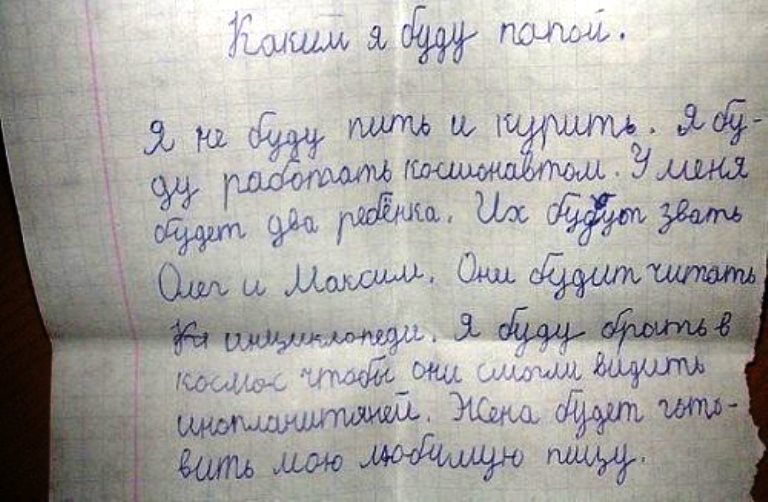 Каким я буду папой.
Я не буду пить и курить. Я бу-
ду работать космонавтом. У меня
будет два ребёнка. Их будут звать
Олег и Максим. Они будит читать
инциклопеди. Я буду брать в
космос чтобы они смогли видить
инопланитяней. Жена будет гото-
вить мою любимую пиццу.